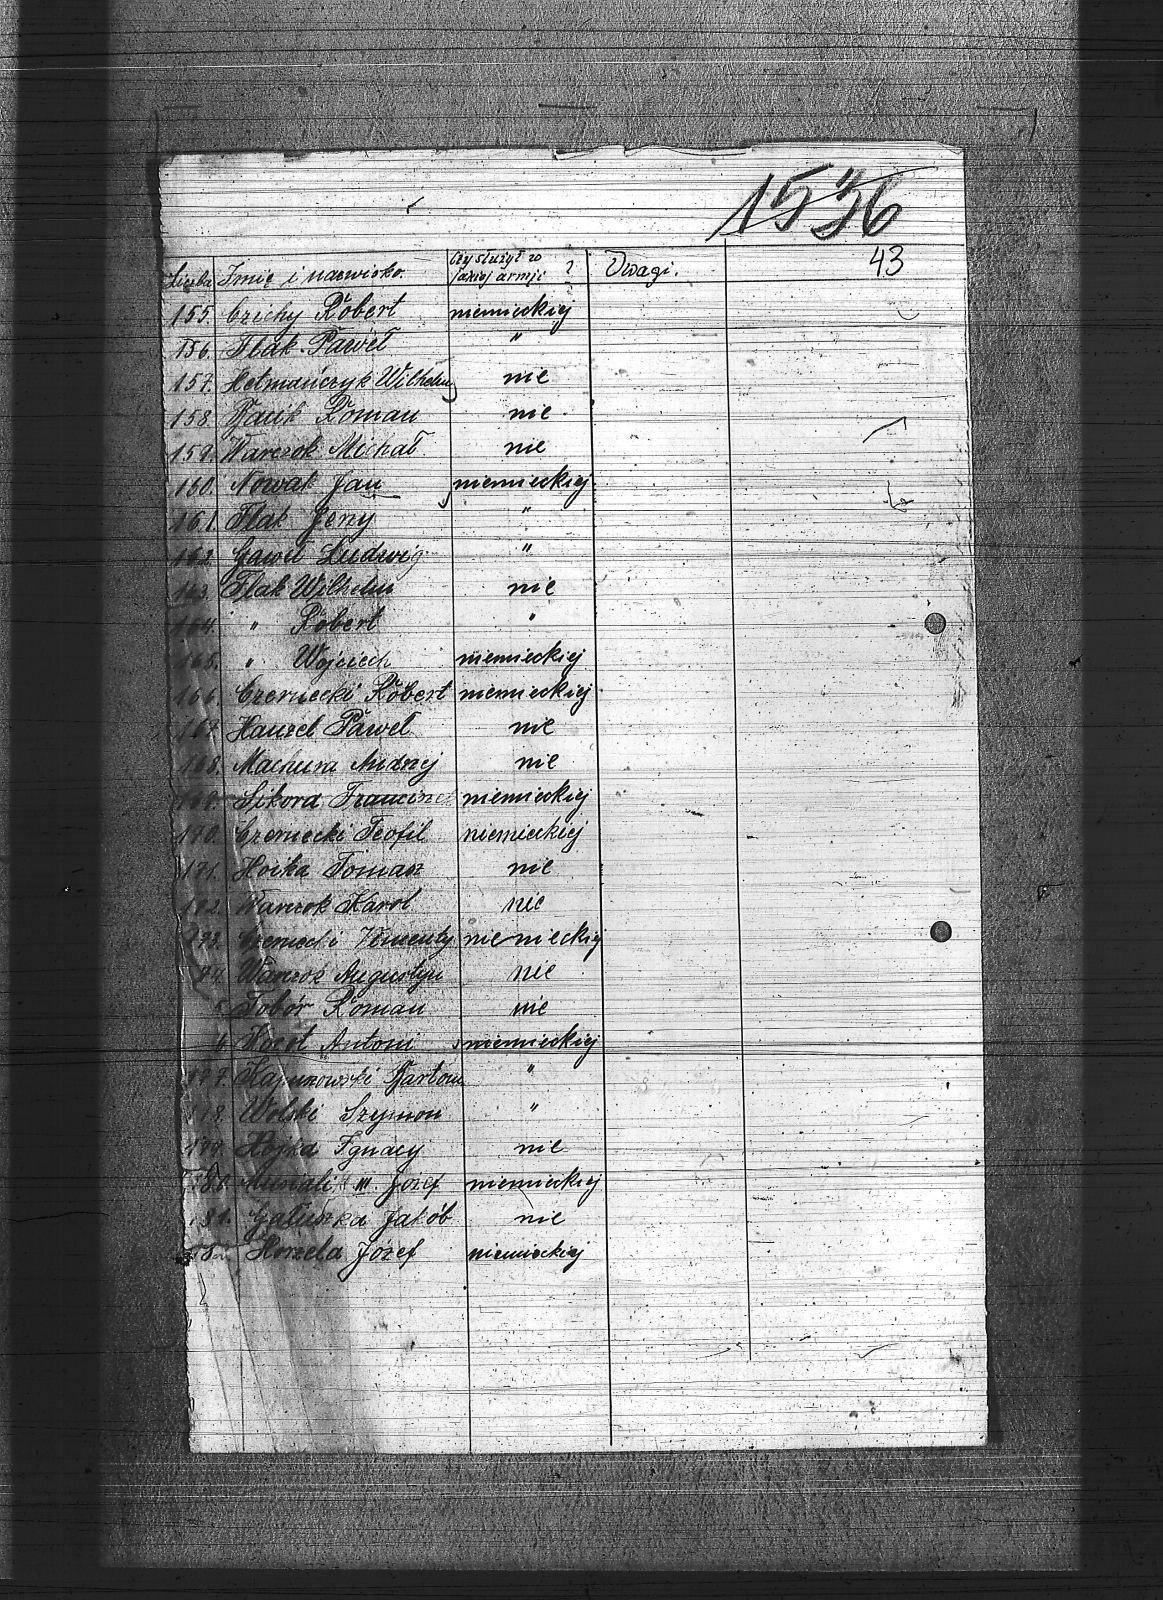 1536
43
Liczba Imię i nazwisko. Czy służył w jakiej armji ? Uwagi.
155. Czichy Robert niemieckiej
156. Flak Paweł "
157. Hetmańczyk Wilhelm nie
158. Roman nie
159. Warczok Michał nie
160. Nowak Jan niemieckiej
161. Flak Jerzy "
162. Gaweł Ludwig "
163. Flak Wilhelm nie
164. " Robert "
165. " Wojciech niemieckiej
166. Czerniecki Robert niemieckiej
167. Hanzel Paweł nie
168. Machura Andrzej nie
169. Sikora Franciszek niemieckiej
170. Czerniecki Teofil niemieckiej
171. Hoika Tomasz nie
172. Warczok Karol nie
173. Czerniecki Wincenty niemieckiej
74. Warczok Augustyn nie
5. Tobór Roman nie
6. Antoni niemieckiej
177. "
178. Wolski Szymon "
179. Hojka Ignacy nie
180. III. Józef niemieckiej
181. Gałuszka Jakób nie
18 Horzela Józef niemieckiej